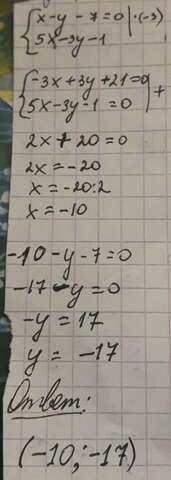 x-y-7=0 |·(-3)
5x-3y-1
-3x+3y+21=0
5x-3y-1=0 | +
2x+20=0
2x=-20
x=-20:2
x=-10
-10-y-7=0
-17-y=0
-y=17
y=-17
Ответ:
(-10;-17)